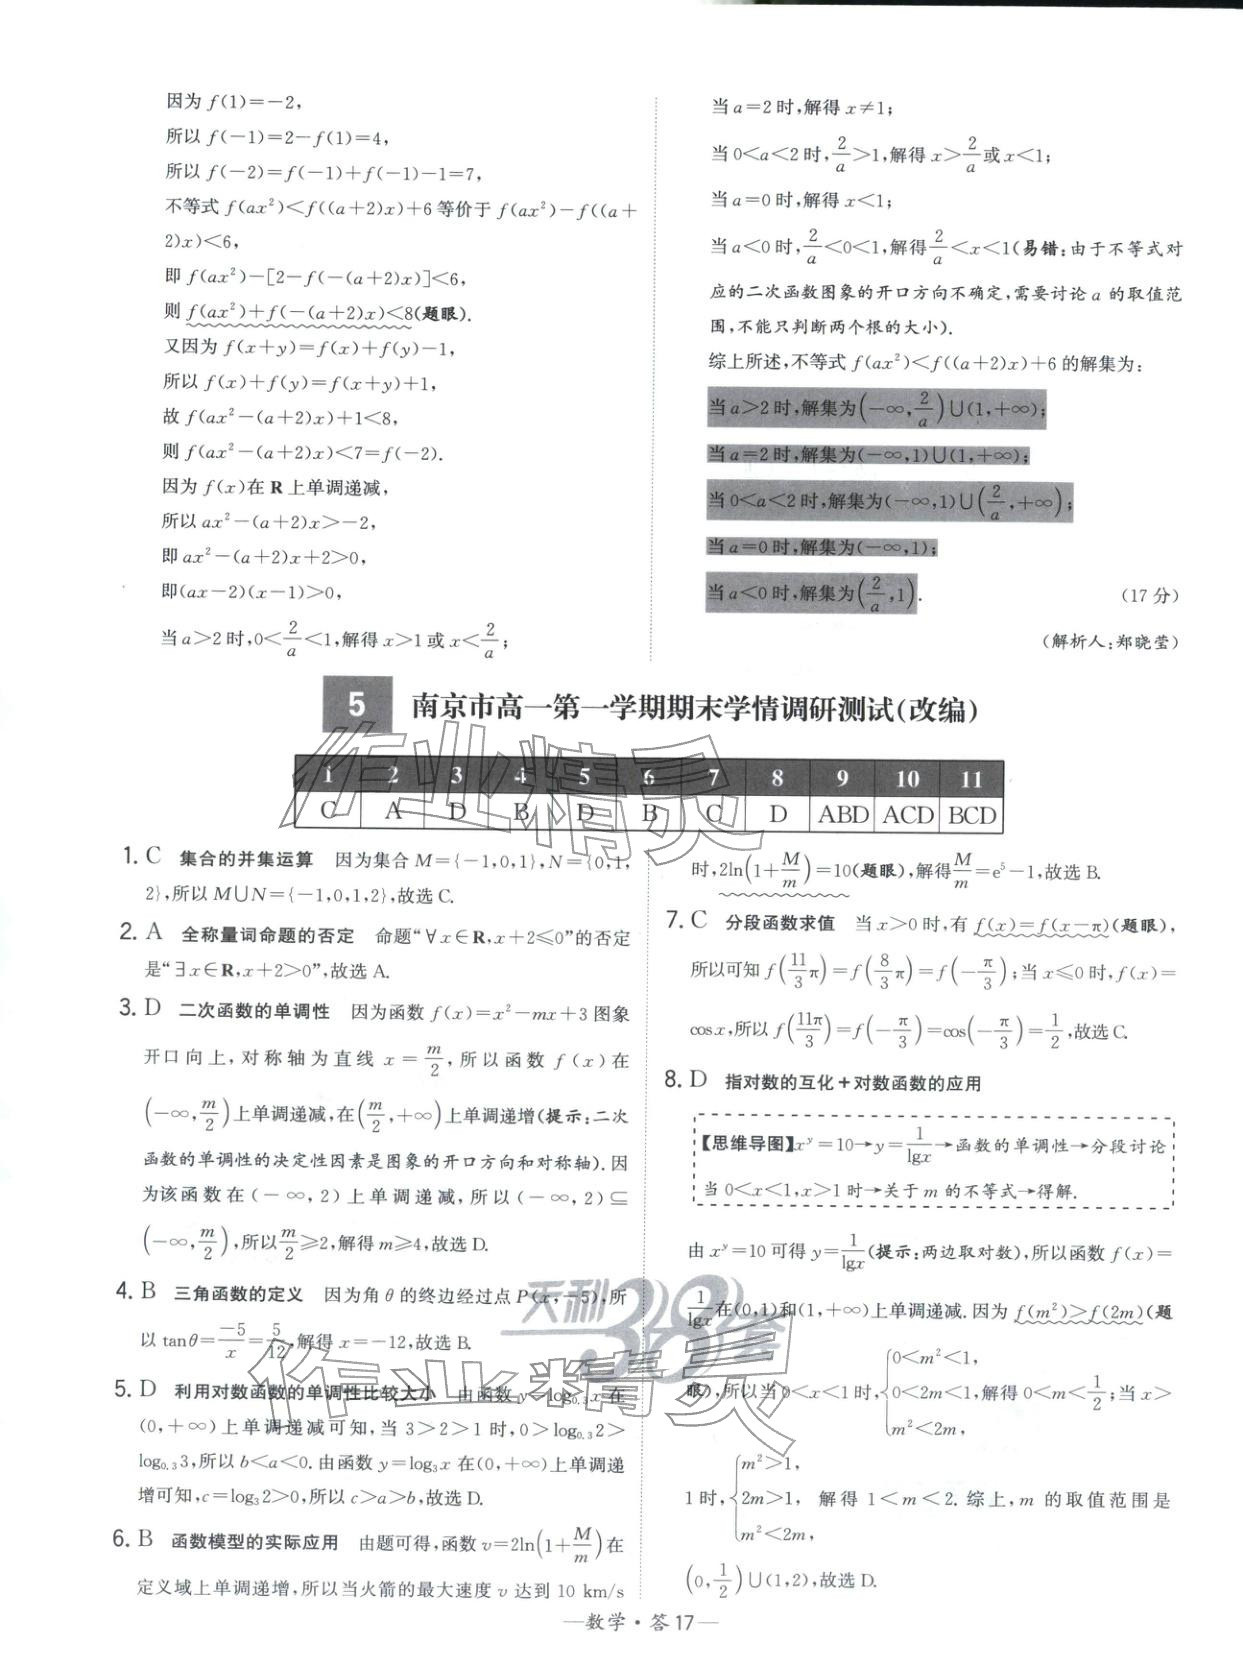 因为 f(1)=-2,
所以 f(-1)=2-f(1)=4,
所以 f(-2)=f(-1)+f(-1)-1=7,
不等式 f(ax²)<f((a+2)x)+6 等价于 f(ax²)-f((a+
2)x)<6,
即 f(ax²)-[2-f(-(a+2)x)]<6,
则 f(ax²)+f(-(a+2)x)<8(题眼).
又因为 f(x+y)=f(x)+f(y)-1,
所以 f(x)+f(y)=f(x+y)+1,
故 f(ax²-(a+2)x)+1<8,
则 f(ax²-(a+2)x)<7=f(-2).
因为 f(x)在 R 上单调递减,
所以 ax²-(a+2)x>-2,
即 ax²-(a+2)x+2>0,
即(ax-2)(x-1)>0,
当 a>2 时,0<2/a<1,解得 x>1 或 x<2/a;
当 a=2 时,解得 x≠1;
当 0<a<2 时,2/a>1,解得 x>2/a 或 x<1;
当 a=0 时,解得 x<1;
当 a<0 时,2/a<0<1,解得 2/a<x<1(易错:由于不等式对
应的二次函数图象的开口方向不确定,需要讨论 a 的取值范
围,不能只判断两个根的大小).
综上所述,不等式 f(ax²)<f((a+2)x)+6 的解集为:
当 a>2 时,解集为(-∞,2/a)∪(1,+∞);
当 a=2 时,解集为(-∞,1)∪(1,+∞);
当 0<a<2 时,解集为(-∞,1)∪(2/a,+∞);
当 a=0 时,解集为(-∞,1);
当 a<0 时,解集为(2/a,1). (17 分)
(解析人:郑晓莹)
5 南京市高一第一学期期末学情调研测试(改编)
1 2 3 4 5 6 7 8 9 10 11
C A D B D B C D ABD ACD BCD
1. C 集合的并集运算 因为集合 M={-1,0,1},N={0,1,
2},所以 M∪N={-1,0,1,2},故选 C.
2. A 全称量词命题的否定 命题“∀x∈R,x+2≤0”的否定
是“∃x∈R,x+2>0”,故选 A.
3. D 二次函数的单调性 因为函数 f(x)=x²-mx+3 图象
开口向上,对称轴为直线 x=m/2,所以函数 f(x)在
(-∞,m/2)上单调递减,在(m/2,+∞)上单调递增(提示:二次
函数的单调性的决定性因素是图象的开口方向和对称轴).因
为该函数在(-∞,2)上单调递减,所以(-∞,2)⊆
(-∞,m/2),所以m/2≥2,解得 m≥4,故选 D.
4. B 三角函数的定义 因为角 θ 的终边经过点 P(x,-5),所
以 tanθ=-5/x=5/12,解得 x=-12,故选 B.
5. D 利用对数函数的单调性比较大小 由函数 y=log₀.₃x 在
(0,+∞)上单调递减可知,当 3>2>1 时,0>log₀.₃2>
log₀.₃3,所以 b<a<0.由函数 y=log₃x 在(0,+∞)上单调递
增可知,c=log₃2>0,所以 c>a>b,故选 D.
6. B 函数模型的实际应用 由题可得,函数 v=2ln(1+M/m)在
定义域上单调递增,所以当火箭的最大速度 v 达到 10 km/s
时,2ln(1+M/m)=10(题眼),解得M/m=e⁵-1,故选 B.
7. C 分段函数求值 当 x>0 时,有 f(x)=f(x-π)(题眼),
所以可知 f(11/3π)=f(8/3π)=f(-π/3);当 x≤0 时,f(x)=
cosx,所以 f(11π/3)=f(-π/3)=cos(-π/3)=1/2,故选 C.
8. D 指对数的互化+对数函数的应用
【思维导图】xʸ=10→y=1/lgx→函数的单调性→分段讨论
当 0<x<1,x>1 时→关于 m 的不等式→得解.
由 xʸ=10 可得 y=1/lgx(提示:两边取对数),所以函数 f(x)=
1/lgx在(0,1)和(1,+∞)上单调递减.因为 f(m²)>f(2m)(题
眼),所以当 0<x<1 时,{0<m²<1, 0<2m<1, m²<2m, 解得 0<m<1/2;当 x>
1 时,{m²>1, 2m>1, m²<2m, 解得 1<m<2. 综上,m 的取值范围是
(0,1/2)∪(1,2),故选 D.
天利38套
作业精灵
作业精灵
—数学·答 17—